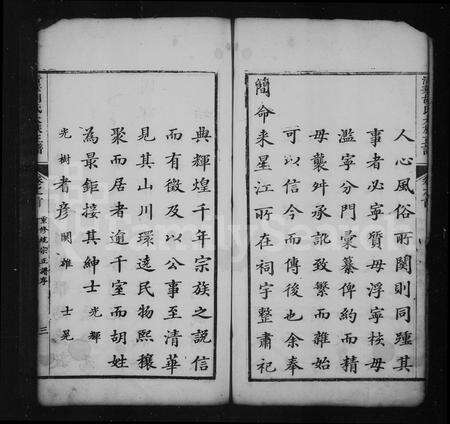 人心風俗所關則同踵其
事者必寧質毋浮寧核毋
濫寧分門彙纂俾約而精
毋襲舛承訛致繁而雜始
可以信今而傳後也余奉
簡命来星江所在祠宇整肅祀
典輝煌千年宗族之説信
而有徵及以公事至清華
見其山川環遶民物熙穰
聚而居者逾千室而胡姓
為最鉅接其紳士光輝
光樹耆彦関雒士晃
重修統宗正譜序
三
FamilySearch